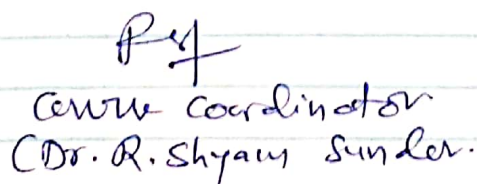 Course coordinator
(Dr. R. Shyam Sunder.